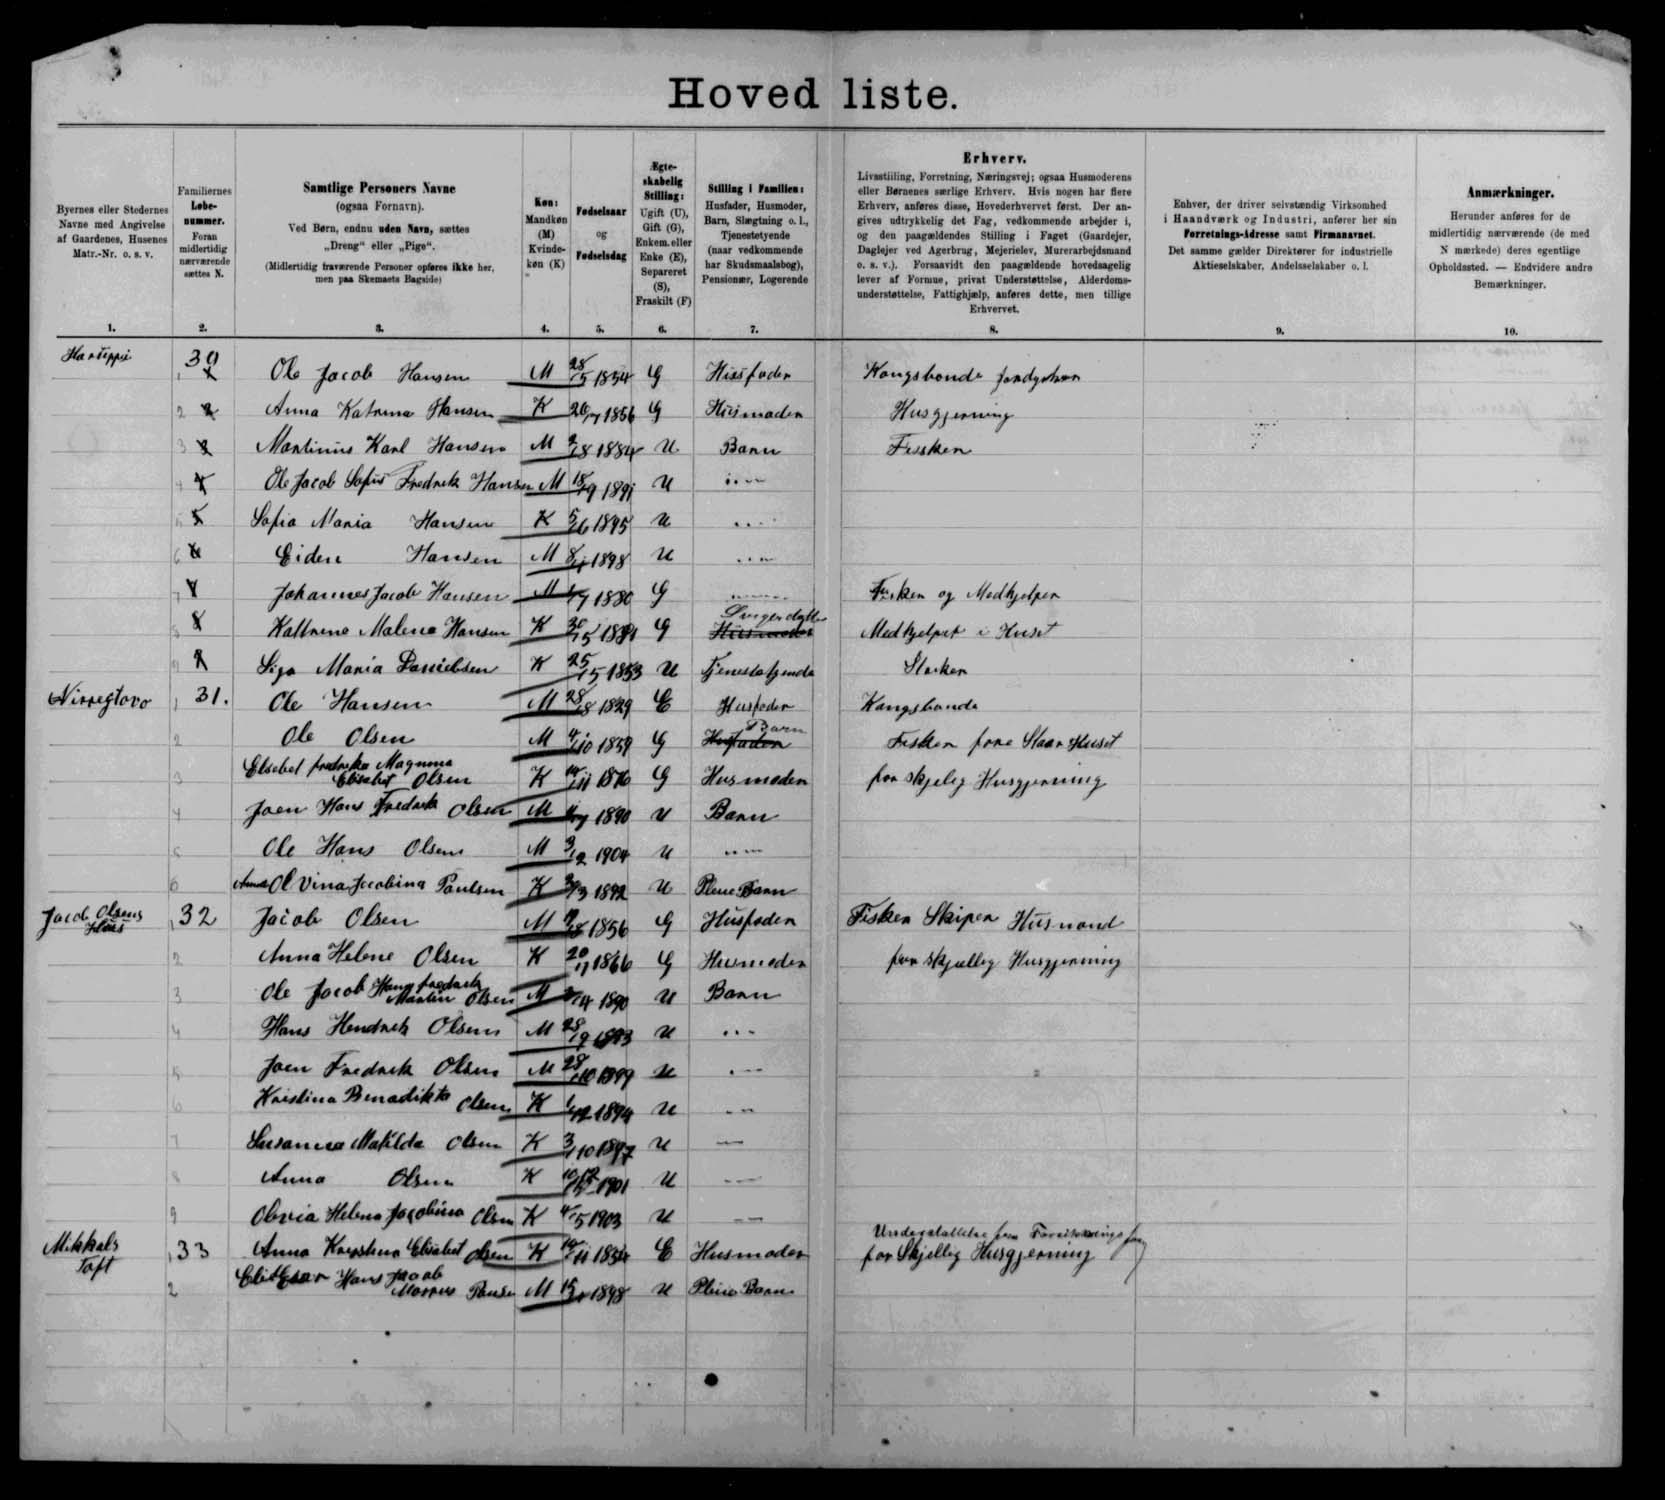 Hoved liste.
Byernes eller Stedernes
Navne med Angivelse
af Gaardenes, Husenes
Matr.-Nr. o. s. v.
1.
Familiernes
Løbe-
nummer.
Foran
midlertidig
nærværende
sættes N.
2.
Samtlige Personers Navne
(ogsaa Fornavn).
Ved Børn, endnu uden Navn, sættes
„Dreng“ eller „Pige“.
(Midlertidig fraværende Personer opføres ikke her,
men paa Skemaets Bagside)
3.
Køn:
Mandkøn
(M)
Kvinde-
køn (K)
4.
Fødselsaar
og
Fødselsdag
5.
Ægte-
skabelig
Stilling:
Ugift (U),
Gift (G),
Enkem. eller
Enke (E),
Separeret
(S),
Fraskilt (F)
6.
Stilling i Familien:
Husfader, Husmoder,
Barn, Slægtning o. l.,
Tjenestetyende
(naar vedkommende
har Skudsmaalsbog),
Pensionær, Logerende
7.
Erhverv.
Livsstilling, Forretning, Næringsvej; ogsaa Husmoderens
eller Børnenes særlige Erhverv. Hvis nogen har flere
Erhverv, anføres disse, Hovederhvervet først. Der an-
gives udtrykkelig det Fag, vedkommende arbejder i,
og den paagældendes Stilling i Faget (Gaardejer,
Daglejer ved Agerbrug, Mejerielev, Murerarbejdsmand
o. s. v.). Forsaavidt den paagældende hovedsagelig
lever af Formue, privat Understøttelse, Alderdoms-
understøttelse, Fattighjælp, anføres dette, men tillige
Erhvervet.
8.
Enhver, der driver selvstændig Virksomhed
i Haandværk og Industri, anfører her sin
Forretnings-Adresse samt Firmanavnet.
Det samme gælder Direktører for industrielle
Aktieselskaber, Andelsselskaber o. l.
9.
Anmærkninger.
Herunder anføres for de
midlertidig nærværende (de med
N mærkede) deres egentlige
Opholdssted. — Endvidere andre
Bemærkninger.
10.
30
1 Ole Jacob Hansen M 28/5 1854 G Husfader Kongsbonde
2 Anna Katrina Hansen K 1856 G Husmoder Husgjerning
3 Martinus Karl Hansen M 1884 U Barn Fisker
4 Ole Jacob Sofus Fredrik Hansen M 18/9 1891 U
5 Sofia Maria Hansen K 5/6 1895 U
6 Eiden Hansen M 1898 U
7 Johannes Jacob Hansen M 1880 G Fisker og Medhjelper
8 Kattrine Malena Hansen K 30/5 G Svigerdatter Husmoder Medhjelper i Huset
9 Maria Danielsen K 25/5 1853 U Tjenestetyende
31. 1 Ole Hansen M 28/8 1829 E Husfader Kongsbonde
2 Ole Olsen M 4/10 1859 G Barn Husfader Fisker
3 Elsebet Magnuna Elisabet Olsen K 1870 G Husmoder forskjelig Husgjerning
4 Joen Hans Fredrik Olsen M 1890 U Barn
5 Ole Hans Olsen M 3/12 1904 U
6 Jacobina Poulsen K 1892 U Pleie Barn
Jacob Olsens Hus 32 1 Jacob Olsen M 1856 G Husfader Fisker Skiper Husmand
2 Anna Helene Olsen K 1866 G Husmoder forskjellig Husgjerning
3 Ole Jacob Hans Fredrik Martin Olsen M 1890 U Barn
4 Hans Hendrik Olsen M 1893 U
5 Joen Fredrik Olsen M 28/10 1899 U
6 Kristina Benadikta Olsen K 1/12 1894 U
7 Susanna Matilda Olsen K 3/10 1897 U
8 Anna Olsen K 1901 U
9 Olevia Helena Jacobina Olsen K 4/5 1903 U
Mikkals Toft 33 1 Anna Elisabet Olsen K E Husmoder forskjellig Husgjerning
2 Hans Jacob M 15 1898 U Pleie Barn